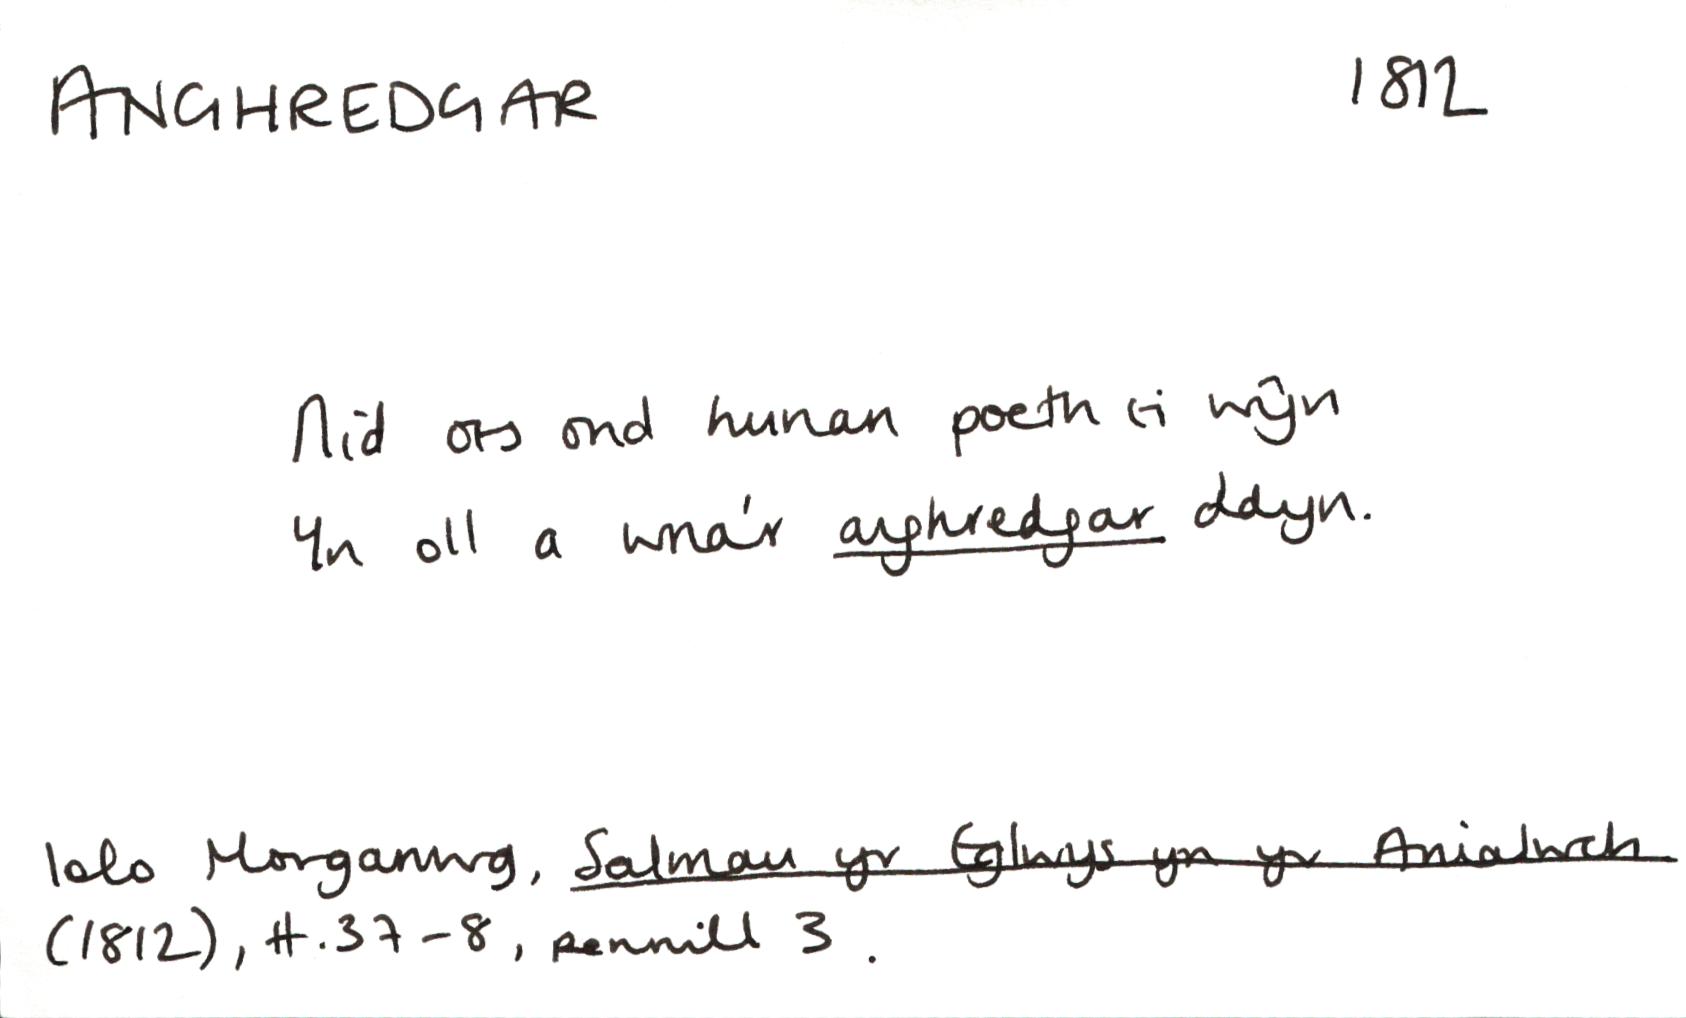 ANGHREDGAR 1812
Nid oes ond hunan poeth ei wŷn
Yn oll a wna'r anghredgar ddyn.
Iolo Morganwg, Salmau yr Eglwys yn yr Anialwch
(1812), tt.37-8, pennill 3.